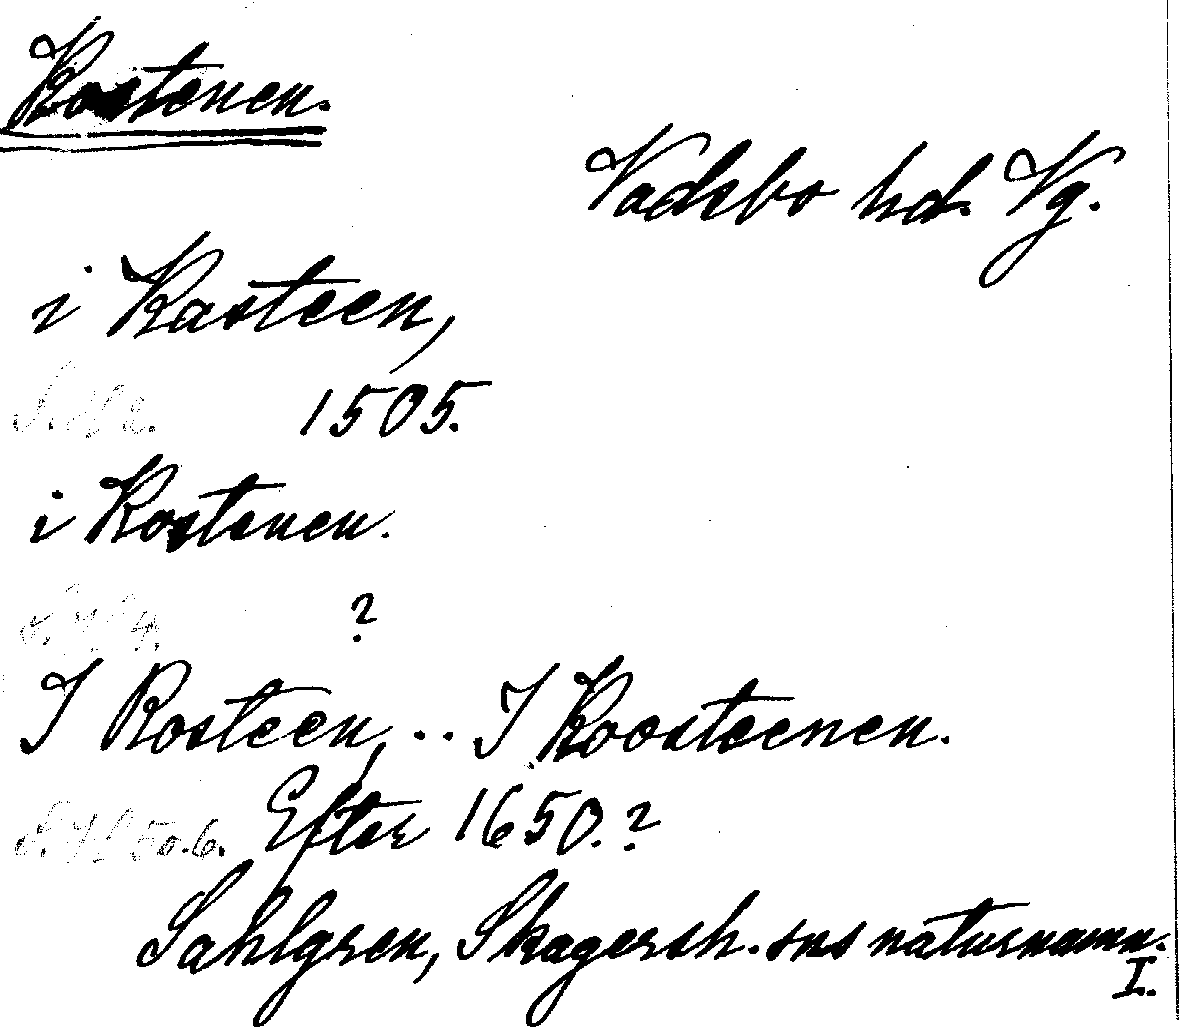 Kostenen.
Vadsbo hd. Vg.
i Kasteen,
1505.
i Kostenen.
?
I Rosteen, .. I Koosteenen.
Efter 1650.?
Sahlgren, Skagersh. sns naturnamn.
I.